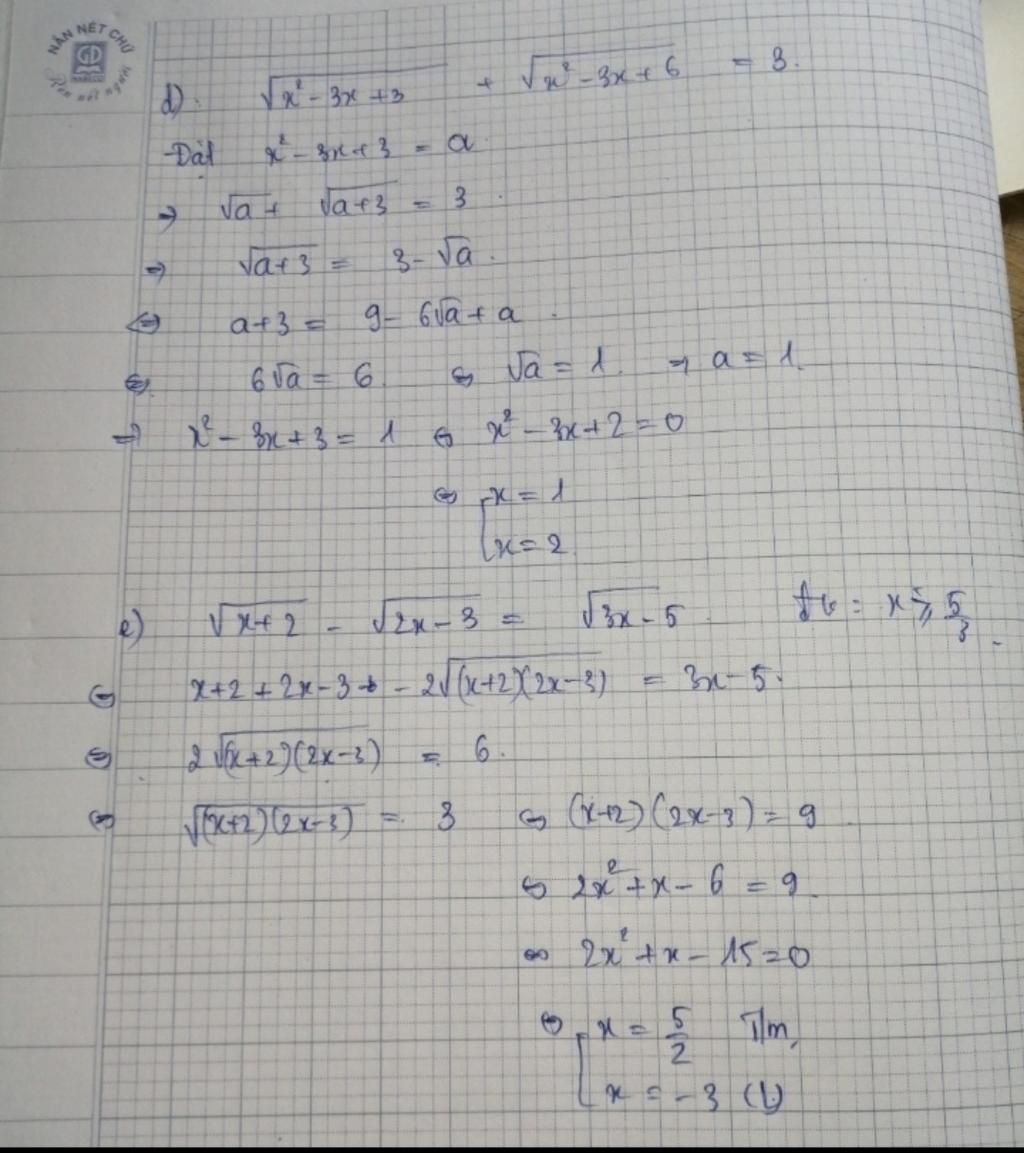 NẮN NÉT CHỮ
GD
Rèn nết người
d). √(x² - 3x + 3) + √(x² - 3x + 6) = 3.
-Đặt x² - 3x + 3 = a.
⇒ √a + √(a+3) = 3.
⇒ √(a+3) = 3 - √a.
⇔ a + 3 = 9 - 6√a + a.
⇔ 6√a = 6 ⇔ √a = 1. ⇒ a = 1.
⇒ x² - 3x + 3 = 1 ⇔ x² - 3x + 2 = 0
⇔ [ x = 1
x = 2
e) √(x+2) - √(2x-3) = √(3x-5) đk: x ≥ 5/3
⇔ x + 2 + 2x - 3 - 2√((x+2)(2x-3)) = 3x - 5.
⇔ 2√((x+2)(2x-3)) = 6.
⇔ √((x+2)(2x-3)) = 3 ⇔ (x+2)(2x-3) = 9
⇔ 2x² + x - 6 = 9
⇔ 2x² + x - 15 = 0
⇔ [ x = 5/2 T/m
x = -3 (L)